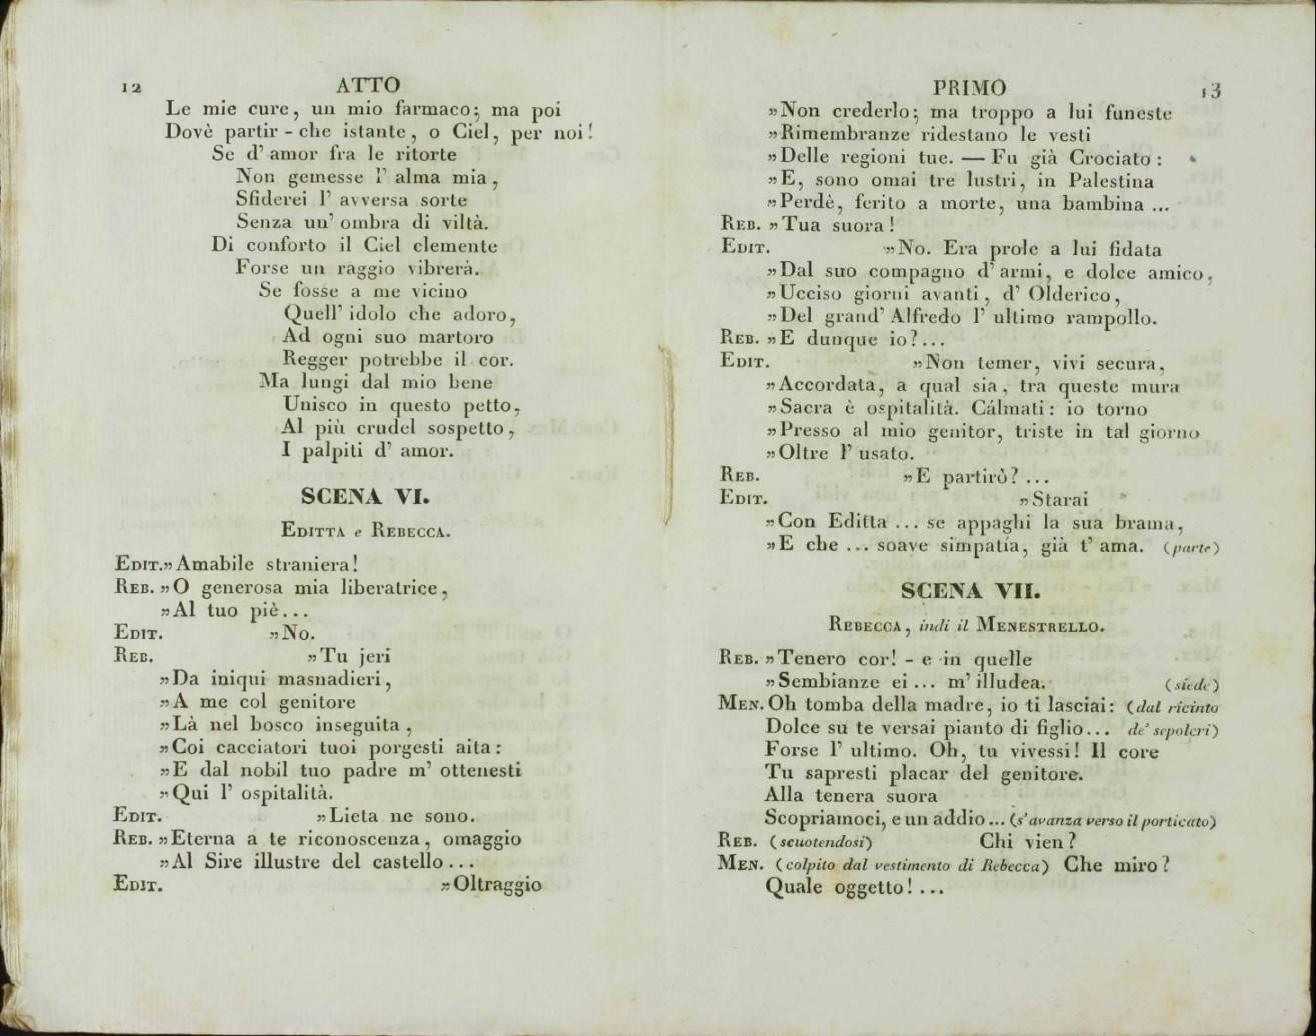 12 ATTO
Le mie cure, un mio farmaco; ma poi
Dovè partir - che istante, o Ciel, per noi!
Se d' amor fra le ritorte
Non gemesse l' alma mia,
Sfiderei l' avversa sorte
Senza un' ombra di viltà.
Di conforto il Ciel clemente
Forse un raggio vibrerà.
Se fosse a me vicino
Quell' idolo che adoro,
Ad ogni suo martoro
Regger potrebbe il cor.
Ma lungi dal mio bene
Unisco in questo petto,
Al più crudel sospetto,
I palpiti d' amor.
SCENA VI.
EDITTA e REBECCA.
EDIT. » Amabile straniera!
REB. » O generosa mia liberatrice,
» Al tuo piè...
EDIT. » No.
REB. » Tu jeri
» Da iniqui masnadieri,
» A me col genitore
» Là nel bosco inseguita,
» Coi cacciatori tuoi porgesti aita:
» E dal nobil tuo padre m' ottenesti
» Qui l' ospitalità.
EDIT. » Lieta ne sono.
REB. » Eterna a te riconoscenza, omaggio
» Al Sire illustre del castello...
EDIT. » Oltraggio
PRIMO 13
» Non crederlo; ma troppo a lui funeste
» Rimembranze ridestano le vesti
» Delle regioni tue. — Fu già Crociato:
» E, sono omai tre lustri, in Palestina
» Perdè, ferito a morte, una bambina ...
REB. » Tua suora!
EDIT. » No. Era prole a lui fidata
» Dal suo compagno d' armi, e dolce amico,
» Ucciso giorni avanti, d' Olderico,
» Del grand' Alfredo l' ultimo rampollo.
REB. » E dunque io?...
EDIT. » Non temer, vivi secura,
» Accordata, a qual sia, tra queste mura
» Sacra è ospitalità. Cálmati: io torno
» Presso al mio genitor, triste in tal giorno
» Oltre l' usato.
REB. » E partirò?...
EDIT. » Starai
» Con Editta ... se appaghi la sua brama,
» E che ... soave simpatía, già t' ama. (parte)
SCENA VII.
REBECCA, indi il MENESTRELLO.
REB. » Tenero cor! - e in quelle
» Sembianze ei... m' illudea. (siede)
MEN. Oh tomba della madre, io ti lasciai: (dal ricinto
Dolce su te versai pianto di figlio... de' sepolcri)
Forse l' ultimo. Oh, tu vivessi! Il core
Tu sapresti placar del genitore.
Alla tenera suora
Scopriamoci, e un addio ... (s'avanza verso il porticato)
REB. (scuotendosi) Chi vien?
MEN. (colpito dal vestimento di Rebecca) Che miro?
Quale oggetto!...